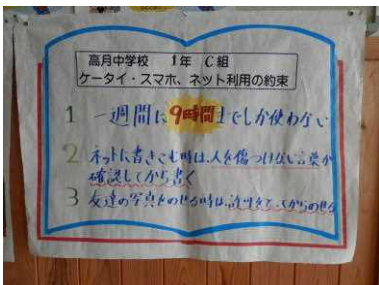 高月中学校 1年 C組
ケータイ・スマホ、ネット利用の約束
1 一週間に9時間までしか使わない
2 ネットに書きこむ時は、人を傷つけない言葉か
確認してから書く
3 友達の写真をのせる時は、許可をとってからのせる